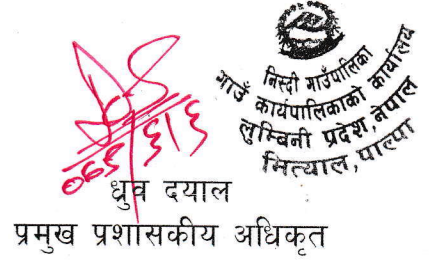 निस्दी गाउँपालिका
गाउँ कार्यपालिकाको कार्यालय
लुम्बिनी प्रदेश, नेपाल
मित्याल, पाल्पा
ध्रुव दयाल
प्रमुख प्रशासकीय अधिकृत